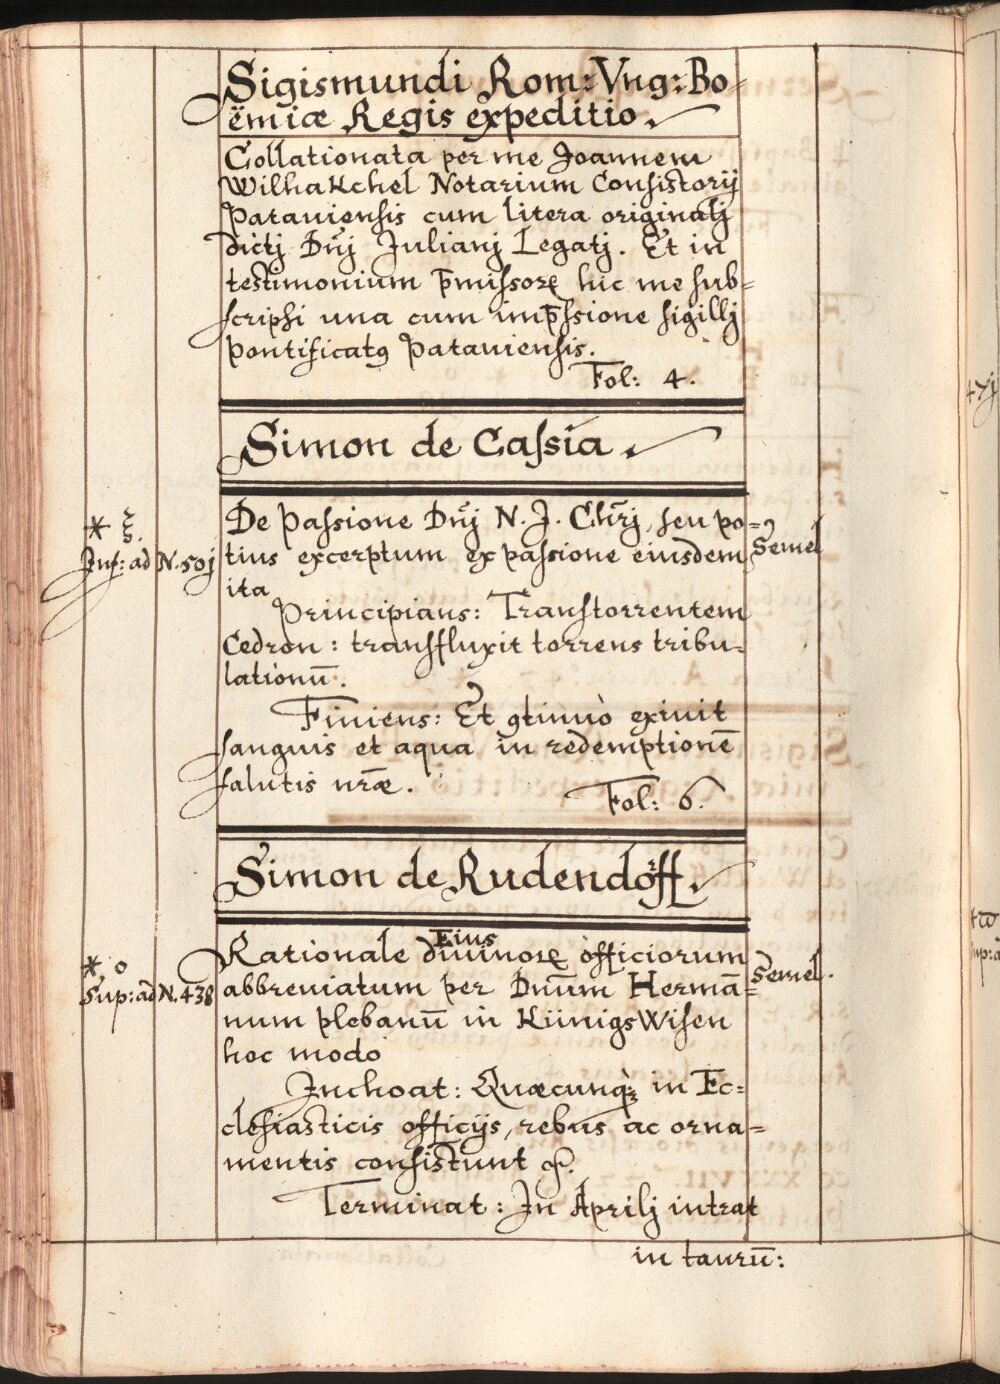 Sigismundi Rom: Vng: Bo-
ëmiæ Regis expeditio.
Collationata per me Joannem
Wilhakchel Notarium Consistorij
Patauiensis cum litera originalj
dictj Dn̄j Julianj Legatj. Et in
testimonium p̄missoꝝ hic me sub=
scripsi una cum imp̄ssione sigillj
Pontificatꝯ Patauiensis.
Fol: 4.
Simon de Cassia.
De Passione Dn̄j N. J. Chr̄j, seu po=
tius excerptum ex passione eiusdem
ita
Semel
* ξ.
Inf: ad N. 50j
Principians: Transtorrentem
Cedron: transfluxit torrens tribu-
lationū.
Finiens: Et ꝯtinuò exiuit
sanguis et aqua in redemptionē
salutis nr̄æ.
Fol: 6.
Simon de Rudendorff.
Eius
Rationale diuinoꝝ officiorum
abbreuiatum per Dnūm Hermā=
num plebanū in KünigsWisen
hoc modo
Semel.
* o
Sup: ad N. 438
Inchoat: Quæcunqꝫ in Ec=
clesiasticis officijs, rebus ac orna=
mentis consistunt
Terminat: In Aprilj intrat
in taurū: